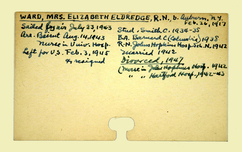 WARD, MRS. ELIZABETH ELDREDGE, R.N. b. Auburn, N.Y.
Feb. 26, 1917
Sailed July 23, 1943
Arr. Beirut Aug. 14, 1943
Nurse in Univ. Hosp.
Left for U.S. Feb. 3, 1945
& resigned
Stud. Smith C. 1934-35
B.A. Barnard C (Columbia) 1938
R.N. Johns Hopkins Hosp. Sch. N. 1942
Married 1942
Divorced, 1947
(Nurse in Johns Hopkins Hosp. 1942
" " Hartford Hosp., 1942-43